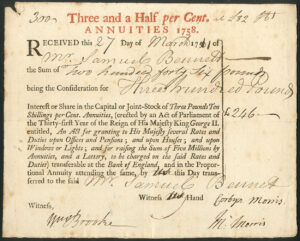 300 Three and a Half per Cent.
ANNUITIES 1758.
RECEIVED this 27 Day of March 1761 of
Mr. Samuel Bennett
the Sum of Two hundred forty Six pounds
being the Consideration for Three hundred Pounds
Interest or Share in the Capital or Joint-Stock of Three Pounds Ten
Shillings per Cent. Annuities, (created by an Act of Parliament of the
Thirty-first Year of the Reign of His Majesty King George II.
entitled, An Act for granting to His Majesty several Rates and
Duties upon Offices and Pensions; and upon Houses; and upon
Windows or Lights; and for raising the Sum of Five Millions by
Annuities, and a Lottery, to be charged on the said Rates and
Duties) transferable at the Bank of England, and in the Propor-
tional Annuity attending the same, by this Day trans-
ferred to the said Mr. Samuel Bennet
£246
Witness Hand
Witness, Morris
Wm Brooke
M. Morris